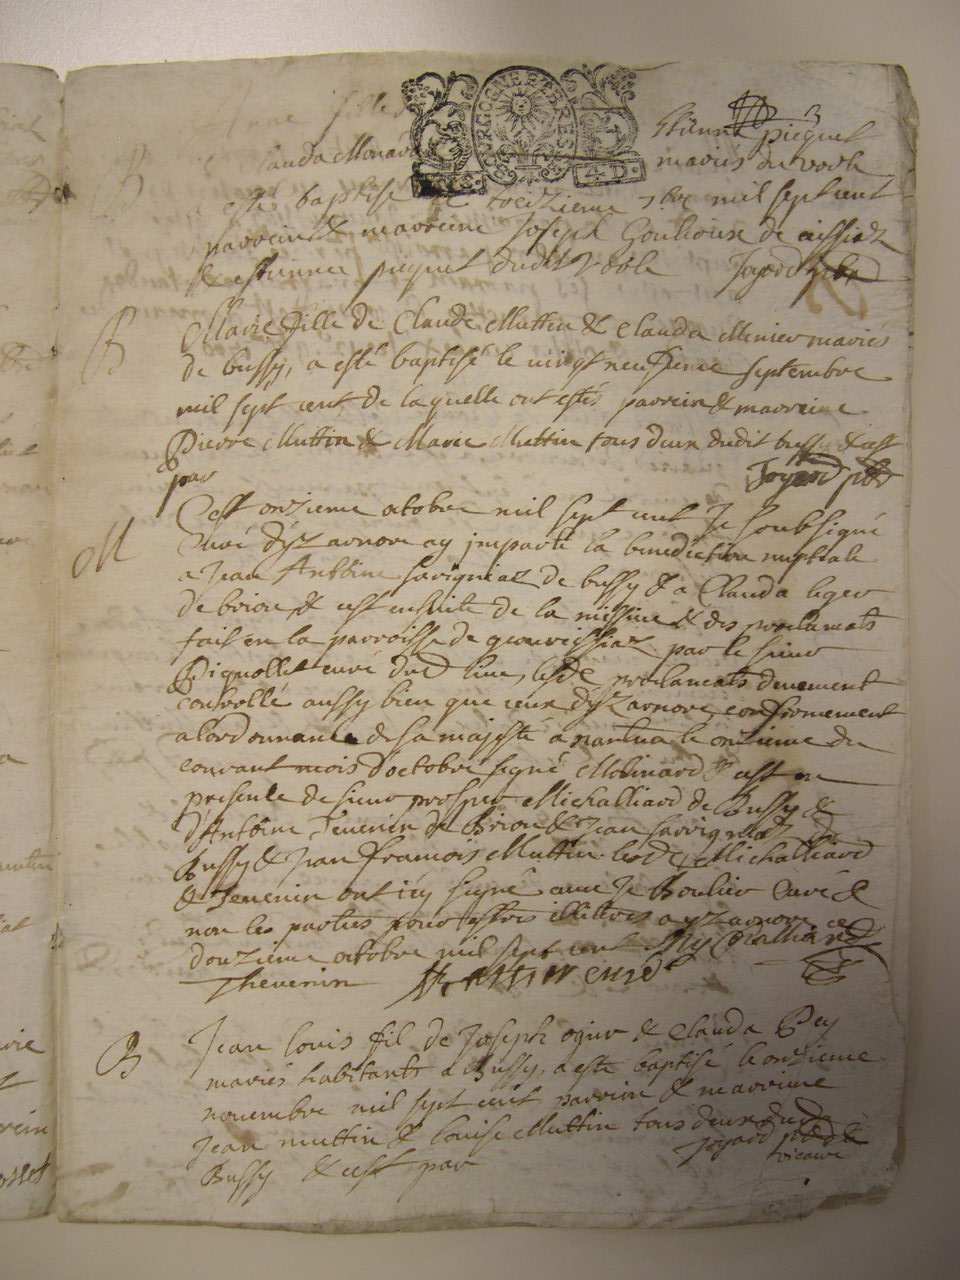 fille
Estienne picquet
BOURGOGNE ET BRESSE
4 D.
B
Clauda Monard
mariés du voole
a esté baptisé le treizieme 7bre mil sept cent
parrein & marreine Joseph Goulioux de
& estienne picquet dudit voole Joyard pbre
B
Marie fille de Claude Muttin & Clauda Minier mariés
de bussy, a esté baptisé le vingt neufieme septembre
mil sept cent de laquelle ont estés parrein & marreine
Pierre Muttin & Marie Muttin tous deux dudit bussy & c'est
par
Joyard pbre
M
Cest onzieme octobre mil sept cent Je soubsigné
Curé d'yzarnore ay imparti la benediction nuptiale
a Jean Antoine savigniaz de bussy & a Clauda leger
de brion & c'est ensuite de la missive & des proclamats
fait en la parroisse de geovreissiaz par le sieur
Piquollet curé dud lieu, lesd proclamats deuement
controllé aussy bien que ceux dyzarnore conformement
a lordonnance de sa majesté a nantua le onzieme du
courant mois d'octobre signé Molinard & c'est en
presence de sieur prosper Michalliard de Bussy &
d'Antoine Tevenin de Brion & Jean savigniaz de
Bussy & Jean francois Muttin lesd Michalliard
& Tevenin ont icy signé avec Je Boulier Curé &
non les parties pour estres illittrés a yzarnore ce
douzieme octobre mil sept cent Mychalliard
Thevenin curé
B
Jean louis fil de Joseph ogier & Clauda Pey
mariés habitants a Bussy, a esté baptisé le onzieme
novembre mil sept cent parrein & marrine
Jean muttin & louise Muttin tous deux du d
Bussy & c'est par
Joyard pbre &
vicaire